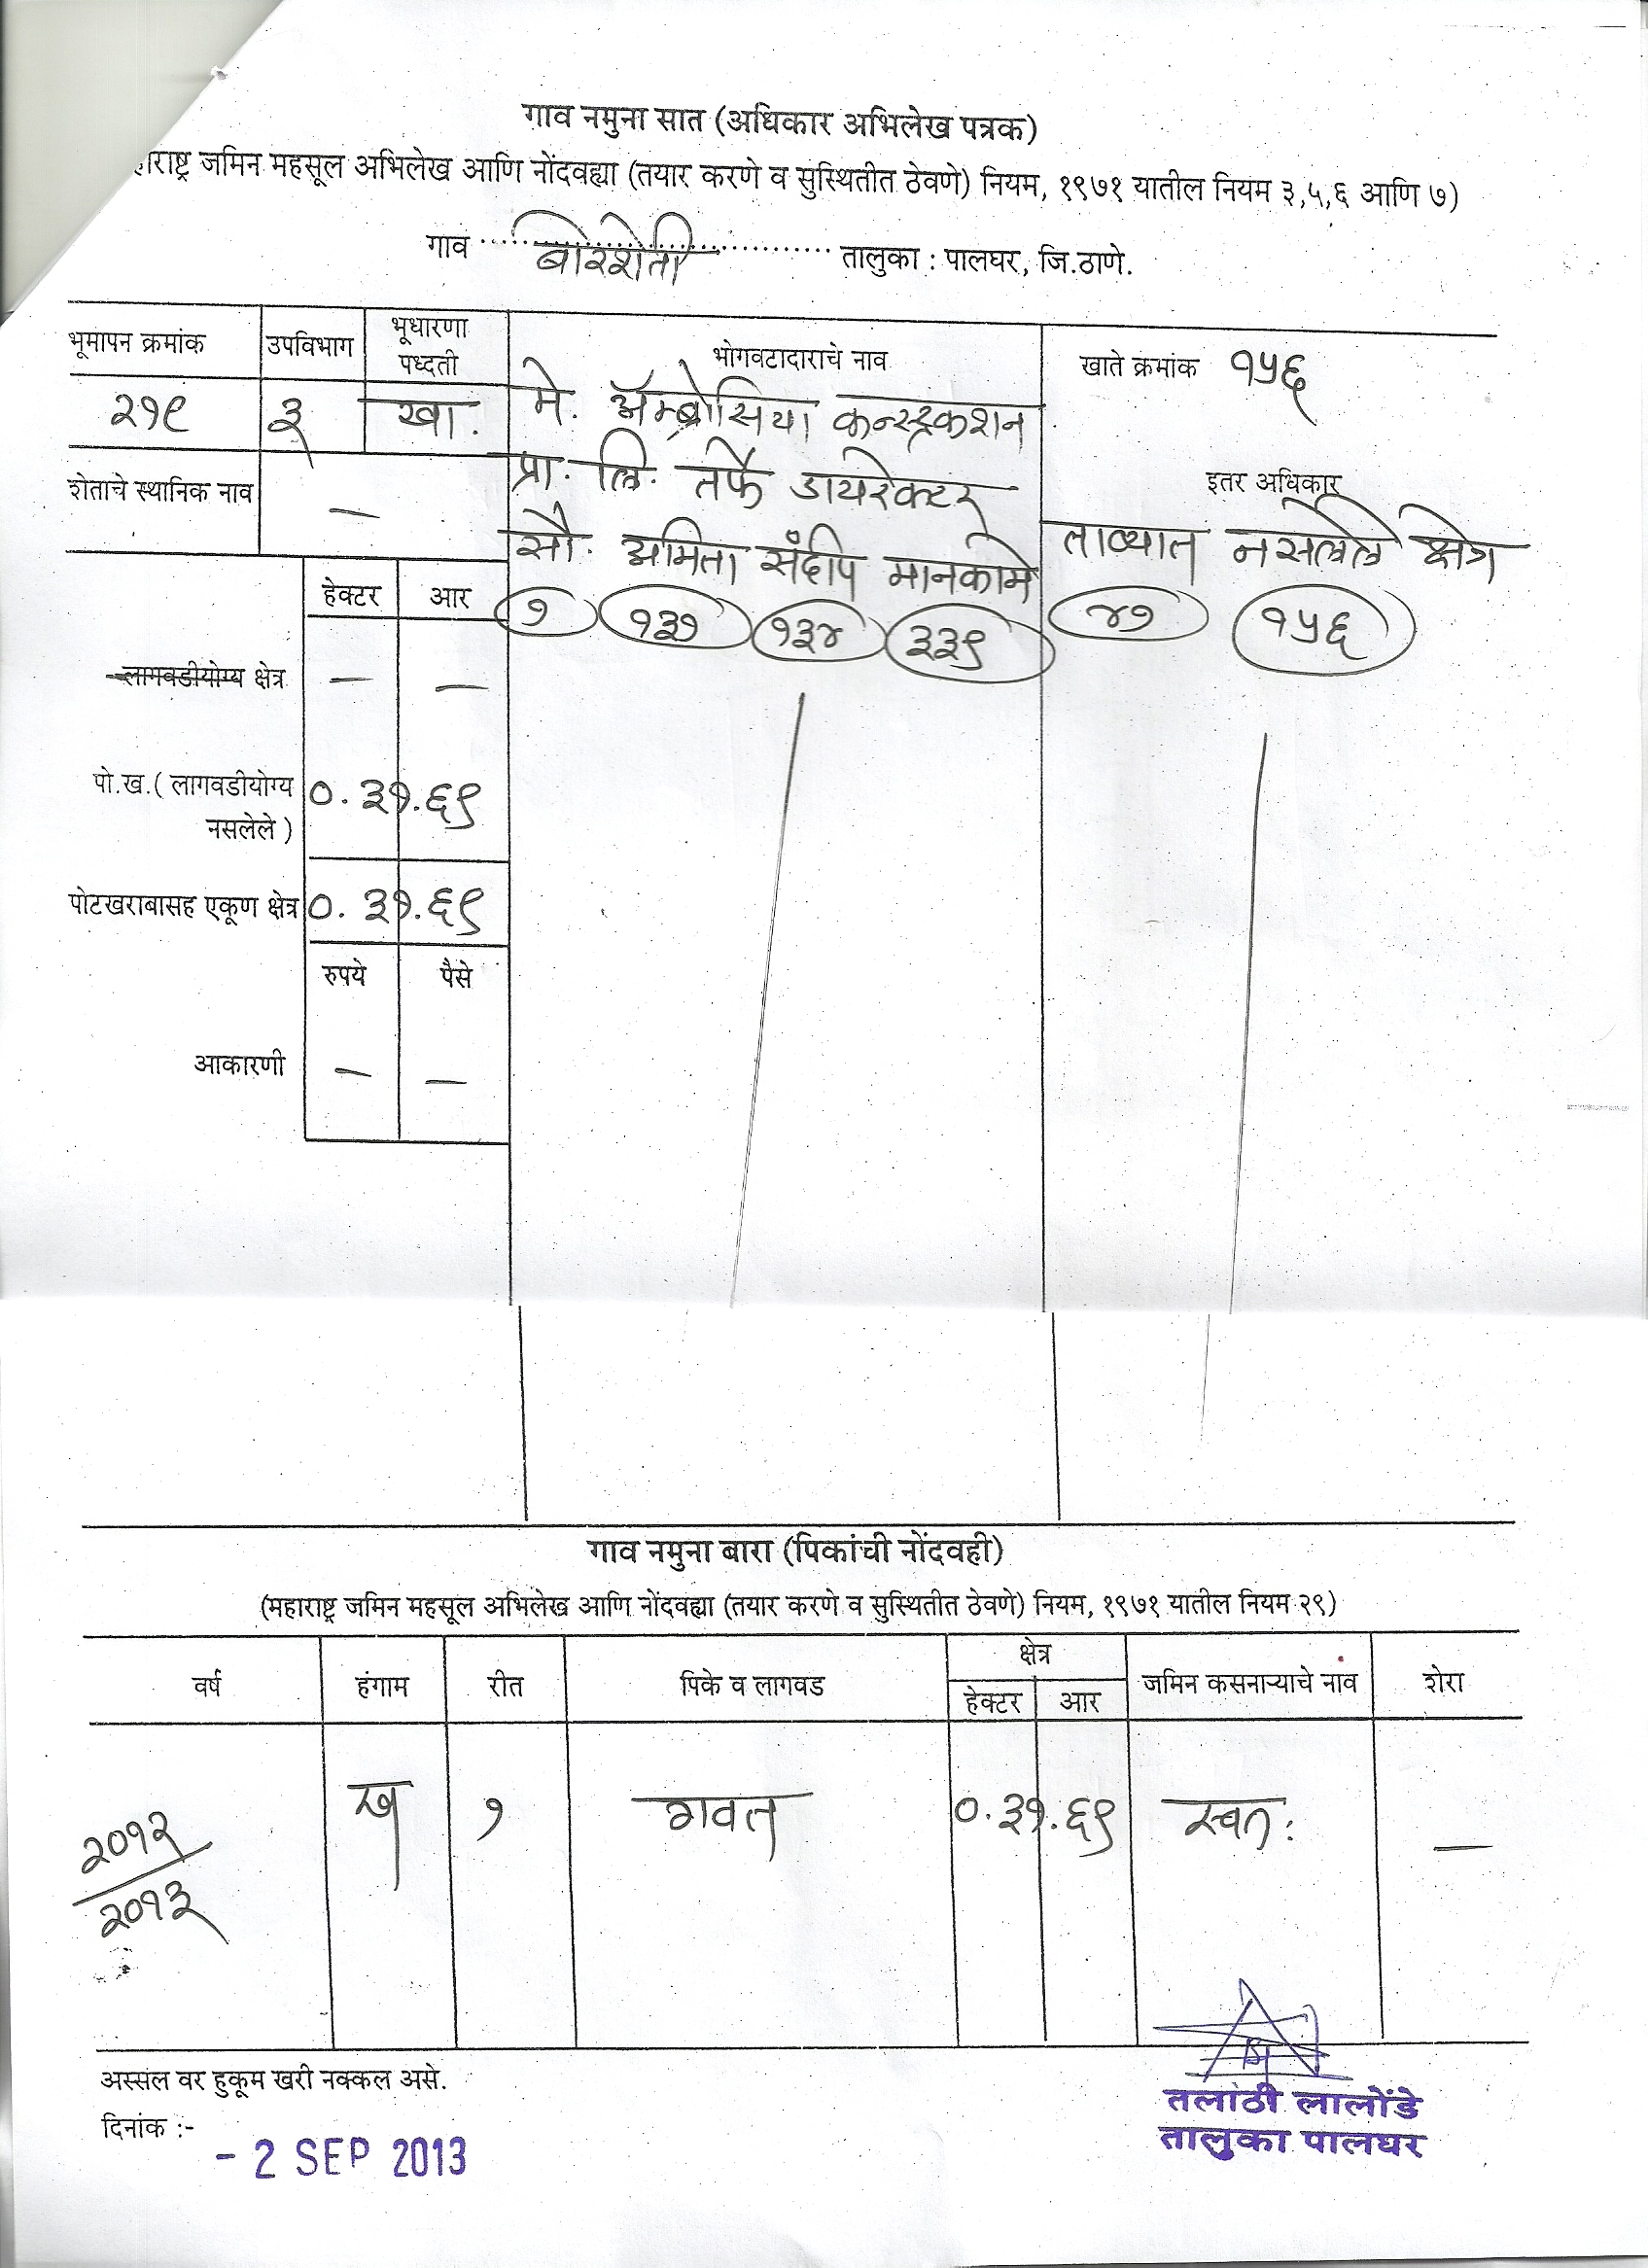 गाव नमुना सात (अधिकार अभिलेख पत्रक)
हाराष्ट्र जमिन महसूल अभिलेख आणि नोंदवह्या (तयार करणे व सुस्थितीत ठेवणे) नियम, १९७१ यातील नियम ३,५,६ आणि ७)
गाव बोरशेती तालुका : पालघर, जि.ठाणे.
भूमापन क्रमांक उपविभाग भूधारणा पध्दती भोगवटादाराचे नाव खाते क्रमांक १५६
२१९ ३ खा. मे. ॲम्ब्रोसिया कन्स्ट्रक्शन
प्रा. लि. तर्फे डायरेक्टर इतर अधिकार
शेताचे स्थानिक नाव —
सौ. अमिता संदीप मानकामे ताब्यात नसलेले क्षेत्र
हेक्टर आर १ १३१ १३४ ३३९ ४१ १५६
लागवडीयोग्य क्षेत्र — —
पो.ख.( लागवडीयोग्य ०.३१.६९
नसलेले )
पोटखराबासह एकूण क्षेत्र ०.३१.६९
रुपये पैसे
आकारणी — —
गाव नमुना बारा (पिकांची नोंदवही)
(महाराष्ट्र जमिन महसूल अभिलेख आणि नोंदवह्या (तयार करणे व सुस्थितीत ठेवणे) नियम, १९७१ यातील नियम २९)
वर्ष हंगाम रीत पिके व लागवड क्षेत्र जमिन कसनाऱ्याचे नांव शेरा
हेक्टर आर
२०१२ ख १ गवत ०.३१.६९ स्वत: —
२०१३
अस्सल वर हुकूम खरी नक्कल असे.
दिनांक :-
- 2 SEP 2013
तलाठी लालोंडे
तालुका पालघर